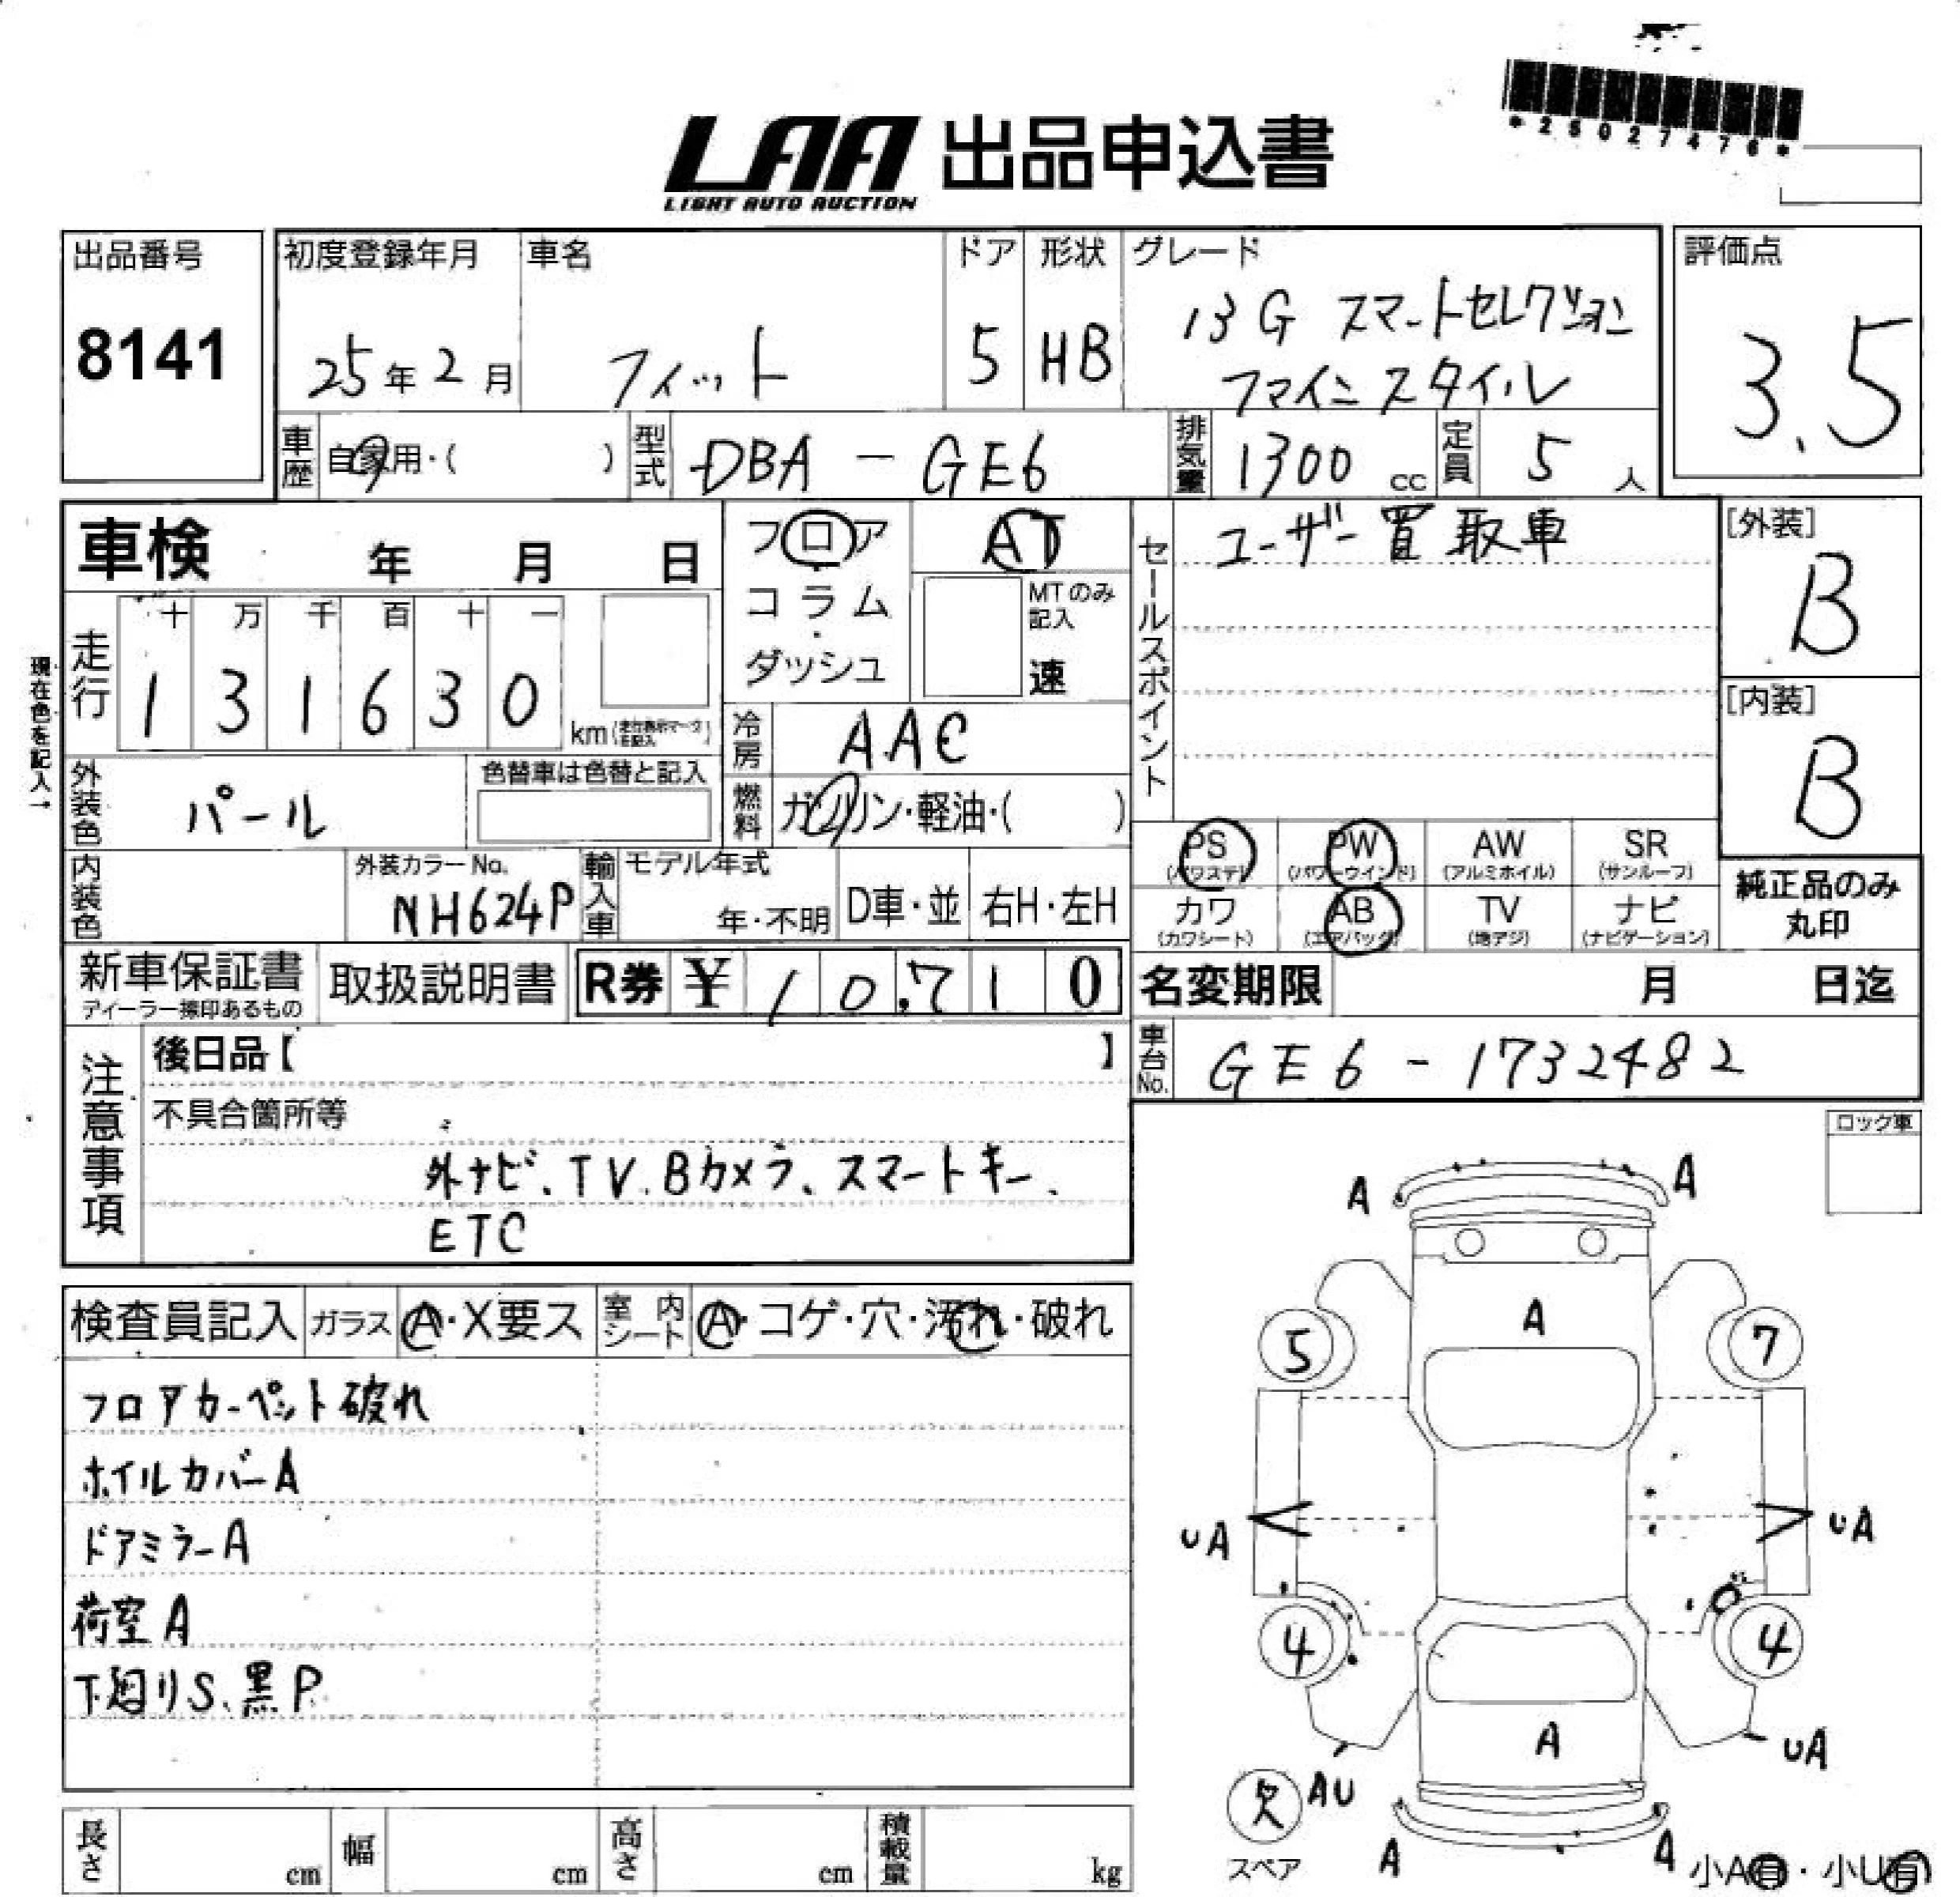 *25027476*
LAA 出品申込書
LIGHT AUTO AUCTION
出品番号
8141
初度登録年月
25年2月
車名
フィット
ドア
5
形状
HB
グレード
13G スマートセレクション
ファインスタイル
評価点
3.5
車歴
自家用・( )
型式
DBA-GE6
排気量
1300 cc
定員
5 人
車検 年 月 日
フロア
コラム
・
ダッシュ
AT
MTのみ
記入
速
セールスポイント
ユーザー買取車
[外装]
B
[内装]
B
現在色を記入→
走行
十 万 千 百 十 一
1 3 1 6 3 0
km
冷房
AAC
燃料
ガソリン・軽油・( )
外装色
パール
色替車は色替と記入
内装色
外装カラーNo.
NH624P
輸入車
モデル年式
年・不明
D車・並
右H・左H
PS
(パワステ)
PW
(パワーウインド)
AW
(アルミホイル)
SR
(サンルーフ)
カワ
(カワシート)
AB
(エアバッグ)
TV
(地デジ)
ナビ
(ナビゲーション)
純正品のみ
丸印
新車保証書
ディーラー捺印あるもの
取扱説明書
R券 ¥ 10,710
名変期限 月 日迄
車台No.
GE6-1732482
注意事項
後日品【 】
不具合箇所等
外ナビ、TV、Bカメラ、スマートキー、
ETC
ロック車
検査員記入
ガラス
A・X要ス
室内シート
A・コゲ・穴・汚れ・破れ
フロアカーペット破れ
ホイルカバーA
ドアミラーA
荷室A
下廻りS、黒P
A A
A
5 7
UA UA
4 4
A
UA
欠 AU
スペア
A A
小A有・小U有
長さ cm
幅 cm
高さ cm
積載量 kg